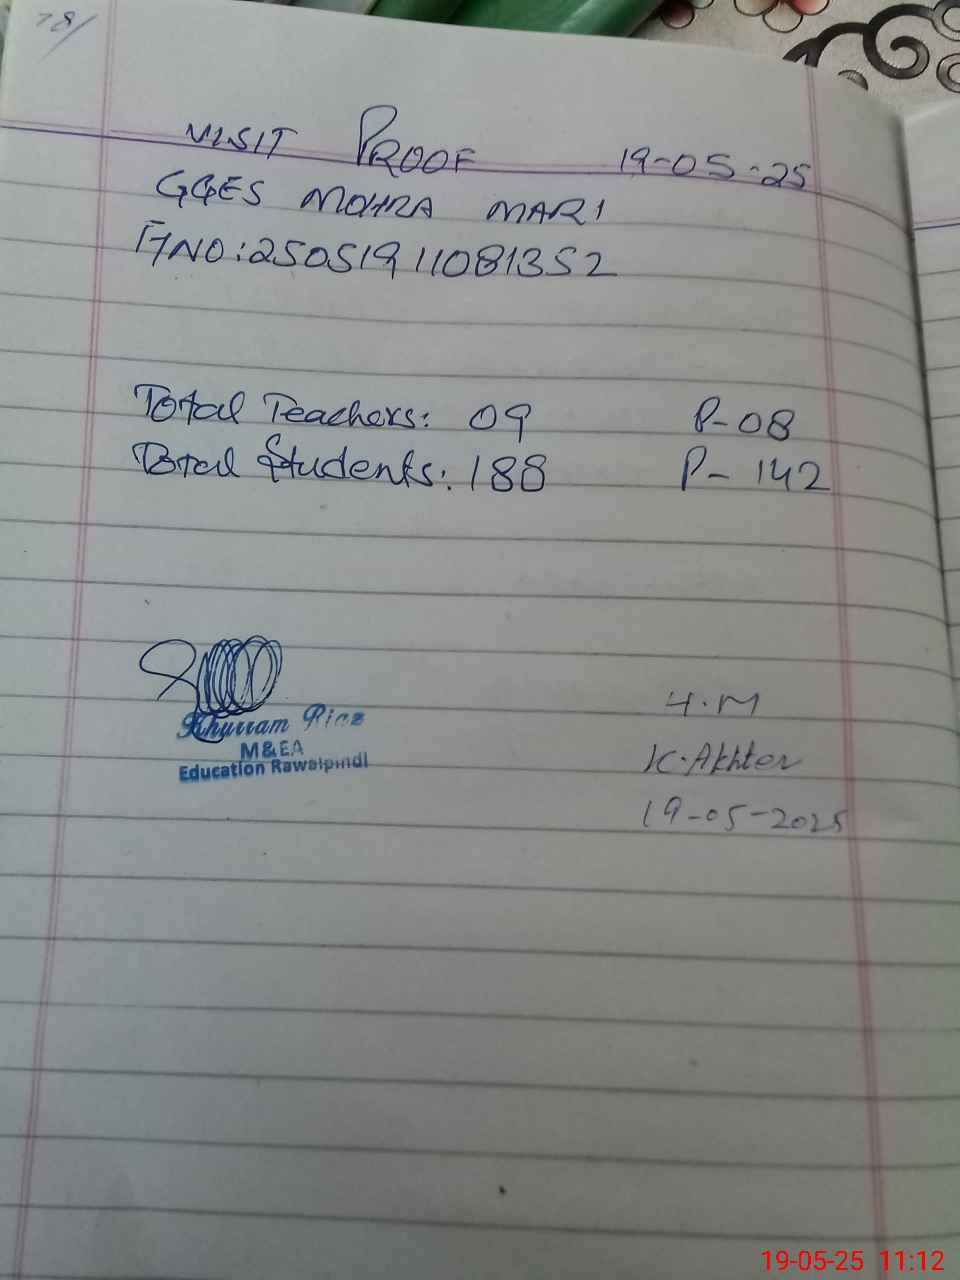 78/
VISIT PROOF 19-05-25
GGES MOHRA MARI
FNO: 25051911081352
Total Teachers: 09 P-08
Total Students: 188 P-142
Khurram Riaz
M&EA
Education Rawalpindi
H.M
K.Akhter
19-05-2025
19-05-25 11:12